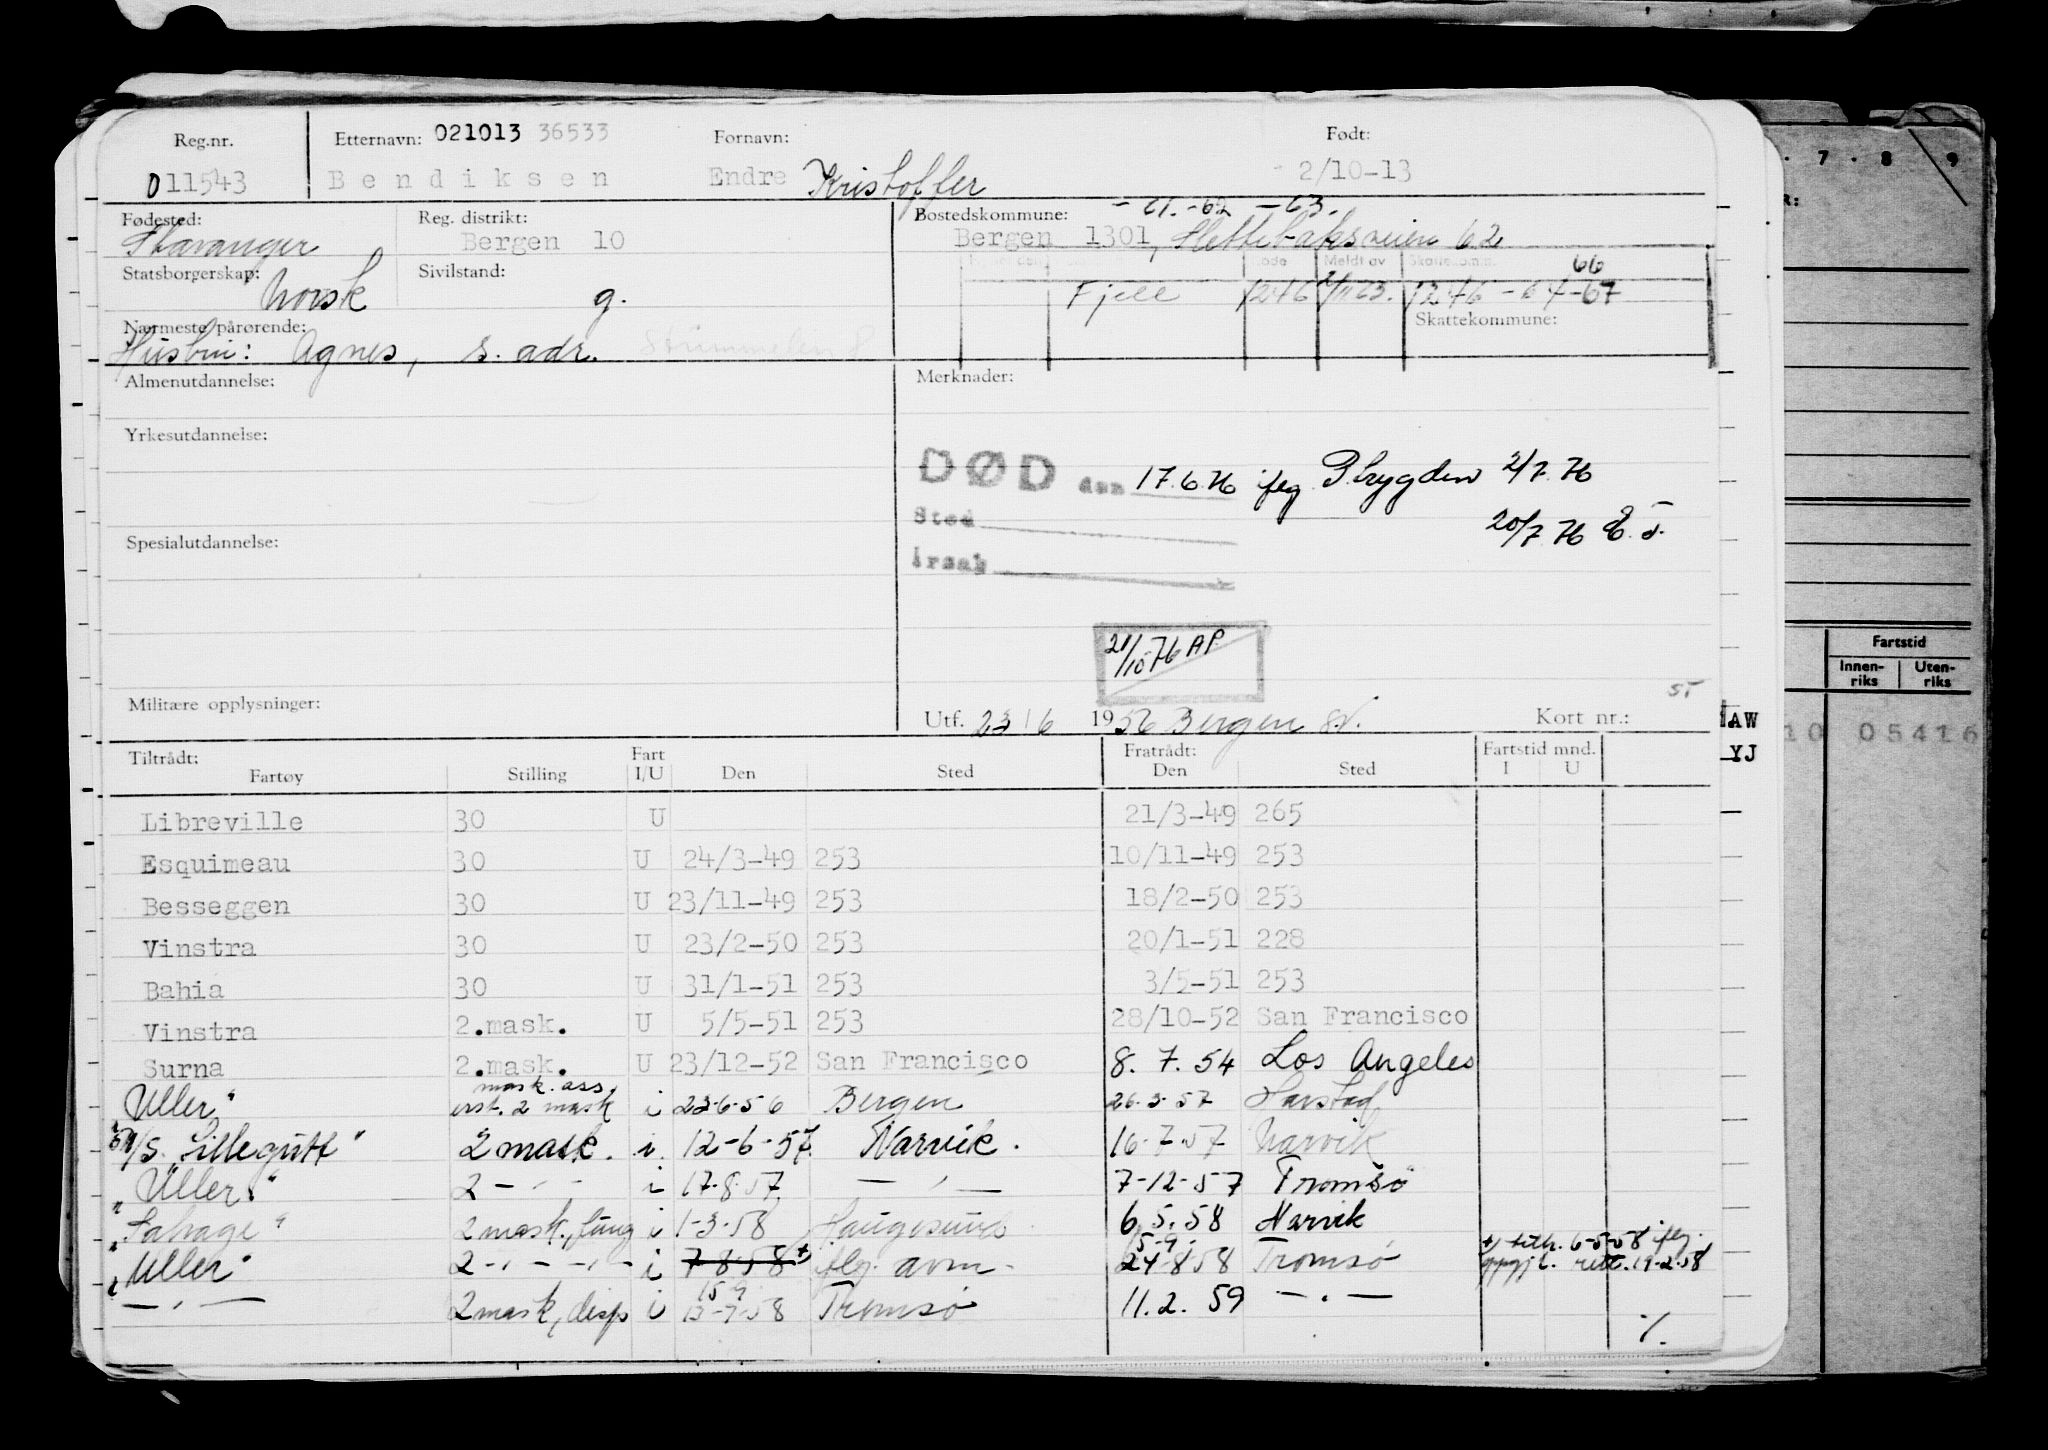 Reg.nr. Etternavn: 021013 36533 Fornavn: Født:
011543 Bendiksen Endre Kristoffer 2/10-13
Fødested: Reg. distrikt: Bostedskommune: -61.-62 -63.
Stavanger Bergen 10 Bergen 1301, Slettebaksveien 62
Statsborgerskap: Sivilstand: Kode Meldt av Skattekomm. 66
Norsk g. Fjell 1246 2/11 63. 1246 - 64-67
Nærmeste pårørende: Skattekommune:
Husbui: Agnes, s. adr.
Almenutdannelse: Merknader:
Yrkesutdannelse:
DØD den 17.6.76 iflg 2/7.76
Sted 20/7.76
Spesialutdannelse:
Årsak
21/10-76 AP
ST
Militære opplysninger: Utf. 23/6 1956 Bergen Kort nr.:
AW
YJ
Tiltrådt: Fart Fratrådt: Fartstid mnd.
Fartøy Stilling I/U Den Sted Den Sted I U
Libreville 30 U 21/3-49 265
Esquimeau 30 U 24/3-49 253 10/11-49 253
Besseggen 30 U 23/11-49 253 18/2-50 253
Vinstra 30 U 23/2-50 253 20/1-51 228
Bahia 30 U 31/1-51 253 3/5-51 253
Vinstra 2.mask. U 5/5-51 253 28/10-52 San Francisco
Surna 2.mask. U 23/12-52 San Francisco 8. 7. 54 Los Angeles
mask. ass.
Uller" erst. 2 mask i 23-6-56 Bergen 26.3.57 Harstad
M/S. Lillegutt" 2 mask. i. 12-6-57. Narvik. 16-7-57 Narvik
"Uller" 2 -"- i 17.8.57 -"- 7-12-57 Tromsø
"Salvage" 2 mask., fung i 1-3-58 Haugesund 6.5.58 Narvik
15-9. +) tiltr. 6-5-58 iflg.
"Uller" 2-"- -"- i 7-8-58 + iflg. avm- 24-8-58 Tromsø oppgj. rett. 19-2-58
15 9
" -"- 2 mask, disp i 13-9-58 Tromsø 11.2. 59 -"-
%
7 . 8 9
R:
Fartstid
Innen-riks Uten-riks
10 05416